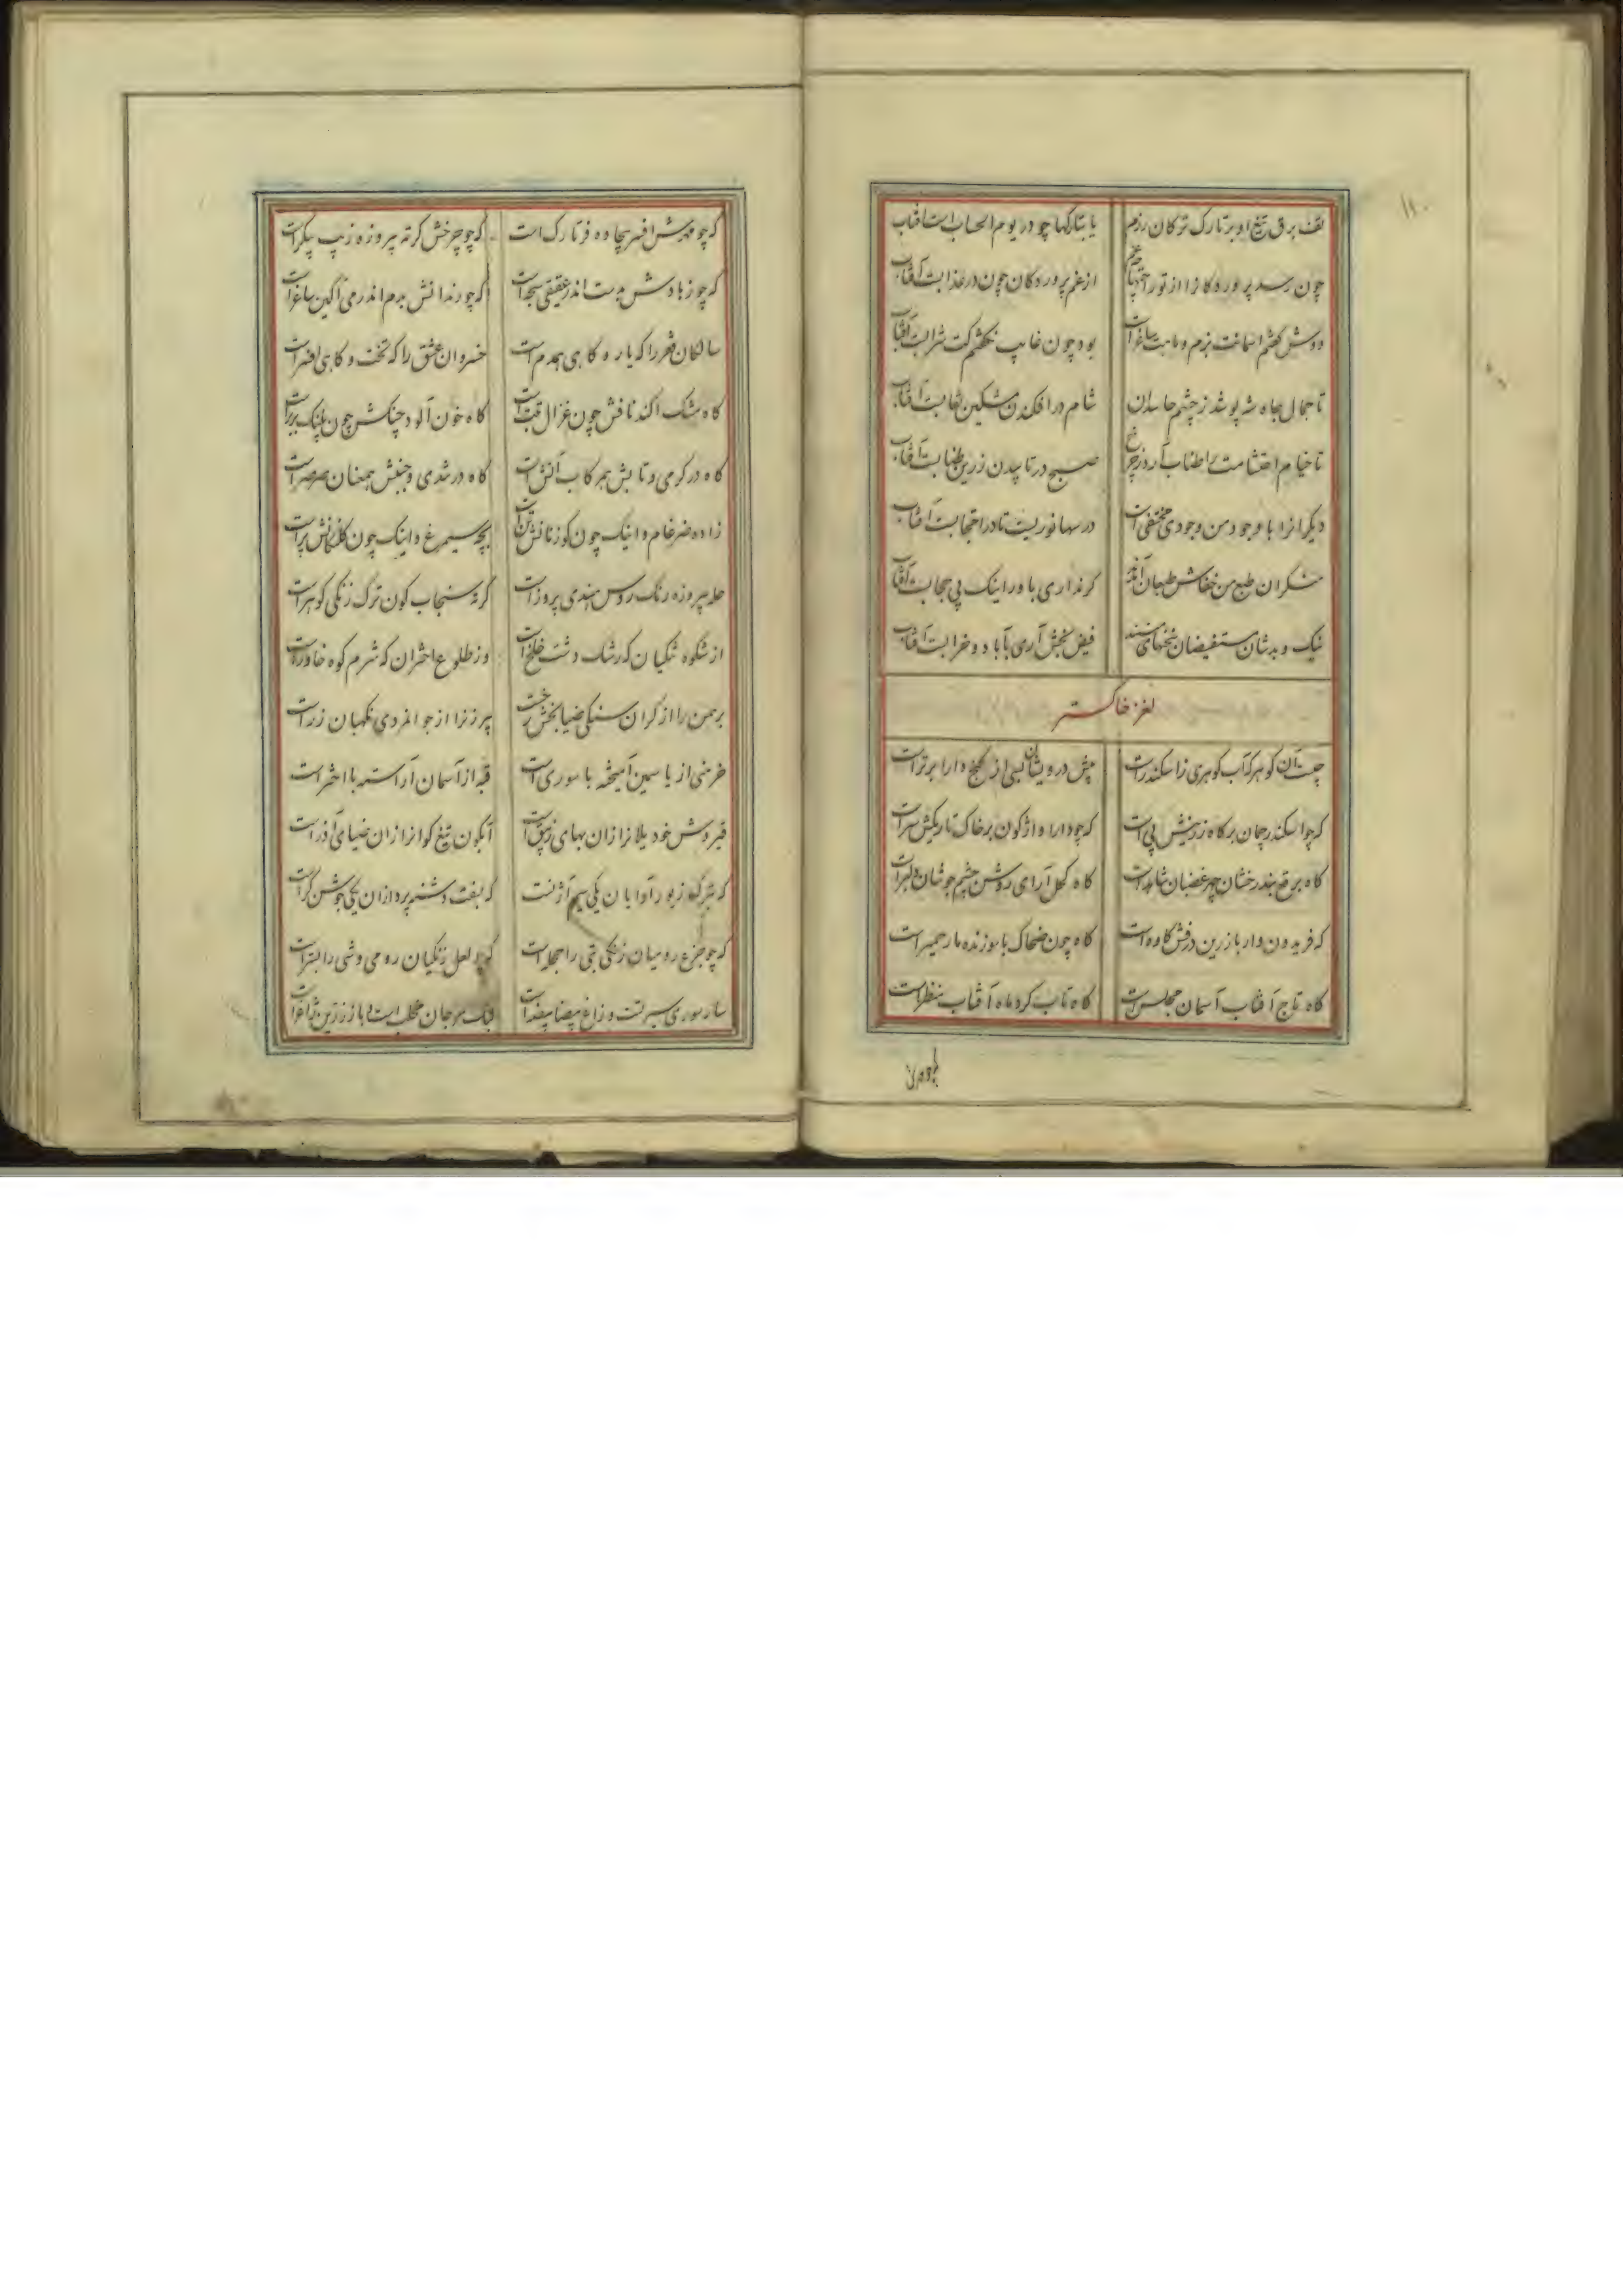 تف برق تیغ او بر تارک ترکان رزم یا بتارکها چو در یوم الحساب است آفتاب
چون رسد پرورده کانرا از تو از غم پرورده کان چون در عذابست آفتاب
دوش گفتم آسمانت بزم و ماهت ساغر است بود چون غایب نگفتم کت شرابست آفتاب
تا جمال جاه شه پوشد ز چشم حاسدان شام در افکندن مشکین نقابست آفتاب
تا خیام احتشامت را طناب آرد ز چرخ صبح در تابیدن زرین طنابست آفتاب
دیگرانرا با وجود من وجودی مختفی است در سها نوریست تا در احتجابست آفتاب
منکران طبع من خفاش طبعان آمدند گر نداری باور اینک بی حجابست آفتاب
نیک و بد شان مستفیضان فیض بخش آری بآباد و خرابست آفتاب
لغز خاکستر
چیست آن گوهر که آب گوهری زاسکندر است پیش درویشان بسی از گنج دارا برتر است
که چو اسکندر چمان بر گاه زرینش پی است که چو دارا واژگون بر خاک تاریکش سر است
گاه برقع بند رخشان چهر غضبان شاهد است گاه کحل آرای روشن چشم جوشان دلبر است
که فریدون وار با زرین درفش کاوه است گاه چون ضحاک با سوزنده مار حمیر است
گاه تاج آفتاب آسمان مجلس است گاه تاب گرد ماه آفتاب منظر است
که چو مهرش افسر بیجاده فر تارک است که چو چرخش کرته پیروزه زیب پیکر است
که چو زهادش بدست اندر عقیقی سبحه است که چو رندانش ببزم اندر می آگین ساغر است
سالکان فقر را که یار و گاهی همدم است خسروان عشق را که تخت و گاهی افسر است
گاه مشک آکند نافش چون غزال تبت است گاه خون آلود چنگش چون پلنگ بربر است
گاه در گرمی و تابش هم رکاب آتش است گاه در تندی و جنبش همعنان صرصر است
زاده ضرغام و اینک چون گوزنانش تن است بچه سیمرغ و اینک چون کلنگانش پر است
حله پیروزه رنگ روس هندی پرور است کرته سنجاب گون ترک زنگی گوهر است
از شکوه مشکیان که رشک دشت خلخ است وز طلوع اختران که شرم کوه خاور است
برهمن را از گران سنگی ضیا بخش رخ است پیر زنرا از جوانمردی نگهبان زر است
خرمنی از یاسمین آمیخته با سوری است قبه از آسمان آراسته با اختر است
قیروش خود یلانرا زان بهای زیبق است آبگون تیغ گوانرا زان ضیای آذر است
که یکی سیم آژنست که بنفت دشنه پردازان یکی جوشن گر است
که چو جزع رومیان زنگی بتی را حجله است که چو لعل زنگیان رومی وشی را بستر است
سار سوری سیرتست و زاغ بیضا بیضه است کبک مرجان مخلب است و باز زرین